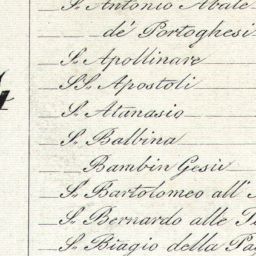 S. Antonio Abate
de' Portoghesi
S. Apollinare
SS. Apostoli
S. Atanasio
S. Balbina
Bambin Gesù
S. Bartolomeo all'
S. Bernardo alle
S. Biagio della